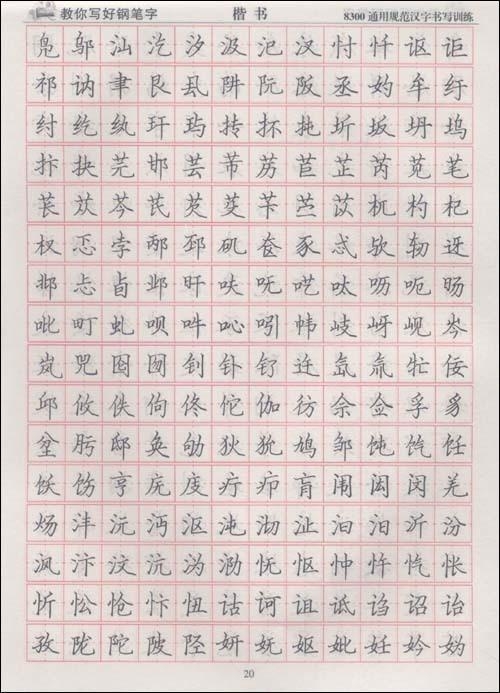 教你写好钢笔字 楷书 8300通用规范汉字书写训练
凫邬汕汔汐汲汜汊忖忏讴讵
祁讷聿艮厾阱阮阪丞妁牟纡
纣纥纨玕玙抟抔扽圻坂坍坞
抃抉芫邯芸芾苈苣芷芮苋芼
苌苁芩芪芡芟苄苎苡杌杓杞
杈忑孛邴邳矶奁豕忒欤轫迓
邶忐卣邺旰呋呒呓呔呖呃旸
吡町虬呗吽吣吲帏岐岈岘岑
岚兕囵囫钊钋钌迕氙氚牤佞
邱攸佚佝佟佗伽彷佘佥孚豸
坌肟邸奂劬狄狁鸠邹饨饩饪
饫饬亨庑庋疔疖肓闱闳闵羌
炀沣沅沔沤沌沏沚汩汨沂汾
沨汴汶沆沩泐怃怄忡忤忾怅
忻忪怆忭忸诂诃诅诋诌诏诒
孜陇陀陂陉妍妩妪妣妊妗妫
20